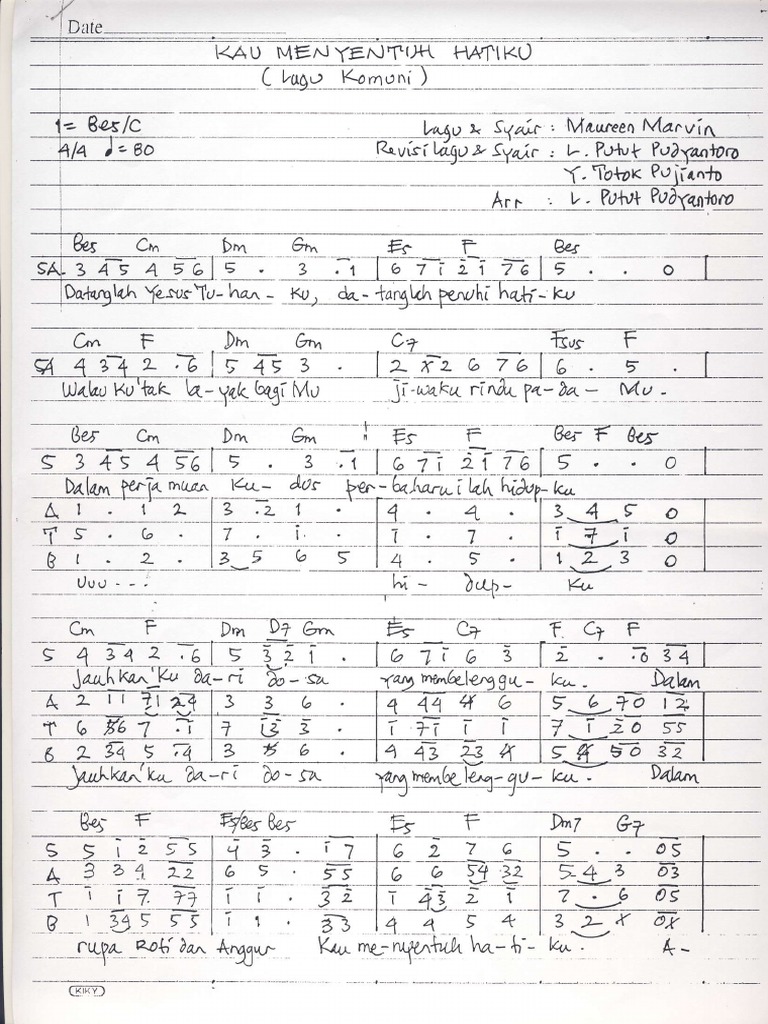 Date
KAU MENYENTUH HATIKU
(Lagu Komuni)
1 = Bes/C
Lagu & Syair : Maureen Marvin
4/4 ♩= 80
Revisi Lagu & Syair : L. Putut Pudyantoro
Y. Totok Pujianto
Arr : L. Putut Pudyantoro
Bes Cm Dm Gm Es F Bes
SA. 3 45 4 56 | 5 . 3 .1 | 6 71 21 76 | 5 . . 0 |
Datanglah Yesus Tu-han-ku, da-tanglah penuhi hati-ku
Cm F Dm Gm C7 Fsus F
SA 4 34 2 .6 | 5 45 3 . | 2 x2 6 76 | 6 . 5 .
Walau Ku'tak la-yak bagi Mu ji-waku rindu pa-da-Mu.
Bes Cm Dm Gm Es F Bes F Bes
S 3 45 4 56 | 5 . 3 .1 | 6 71 21 76 | 5 . . 0
Dalam perjamuan Ku-dus per-baharui lah hidup-ku
A 1 . 1 2 | 3 .2 1 . | 4 . 4 . | 3 4 5 0
T 5 . 6 . | 7 . 1 . | 1 . 7 . | 1 7 1 0
B 1 . 2 . | 3 5 6 5 | 4 . 5 . | 1 2 3 0
Uuu - - . hi- dup- Ku
Cm F Dm D7 Gm Es C7 F C7 F
S 4 34 2 .6 | 5 32 1 . | 6 71 6 3 | 2 . .0 34
Jauhkan'Ku da-ri do-sa yang membelenggu-ku. Dalam
A 2 11 71 24 | 3 3 6 . | 4 44 4 6 | 5 6 70 12
T 6 56 7 .1 | 7 13 3 . | 1 71 1 1 | 7 1 20 55
B 2 34 5 .4 | 3 5 6 . | 4 43 23 4 | 5 4 50 32
Jauhkan'ku da-ri do-sa yang membeleng-gu-ku. Dalam
Bes F Es/Bes Bes Es F Dm7 G7
S 5 1 2 55 | 4 3 . 17 | 6 2 7 6 | 5 . . 05
A 3 3 4 22 | 6 5 . 55 | 6 6 54 32 | 5 4 3 03
T 1 1 7 77 | 1 1 . 32 | 1 43 2 1 | 7 . 6 05
B 1 34 5 55 | 1 1 . 33 | 4 4 5 4 | 3 2 x 0x
rupa Roti dan Anggur Kau me-nyentuh ha-ti-ku. A-
KIKY